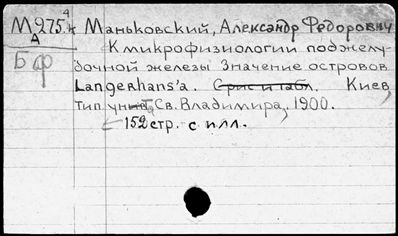 М975.4 Маньковский, Александр Федорович
А К микрофизиологии поджелу-
Бф дочной железы Значение островов
Langerhans'а. С рис и табл. Киев,
тип. унив. Св. Владимира, 1900.
152 стр. с илл.